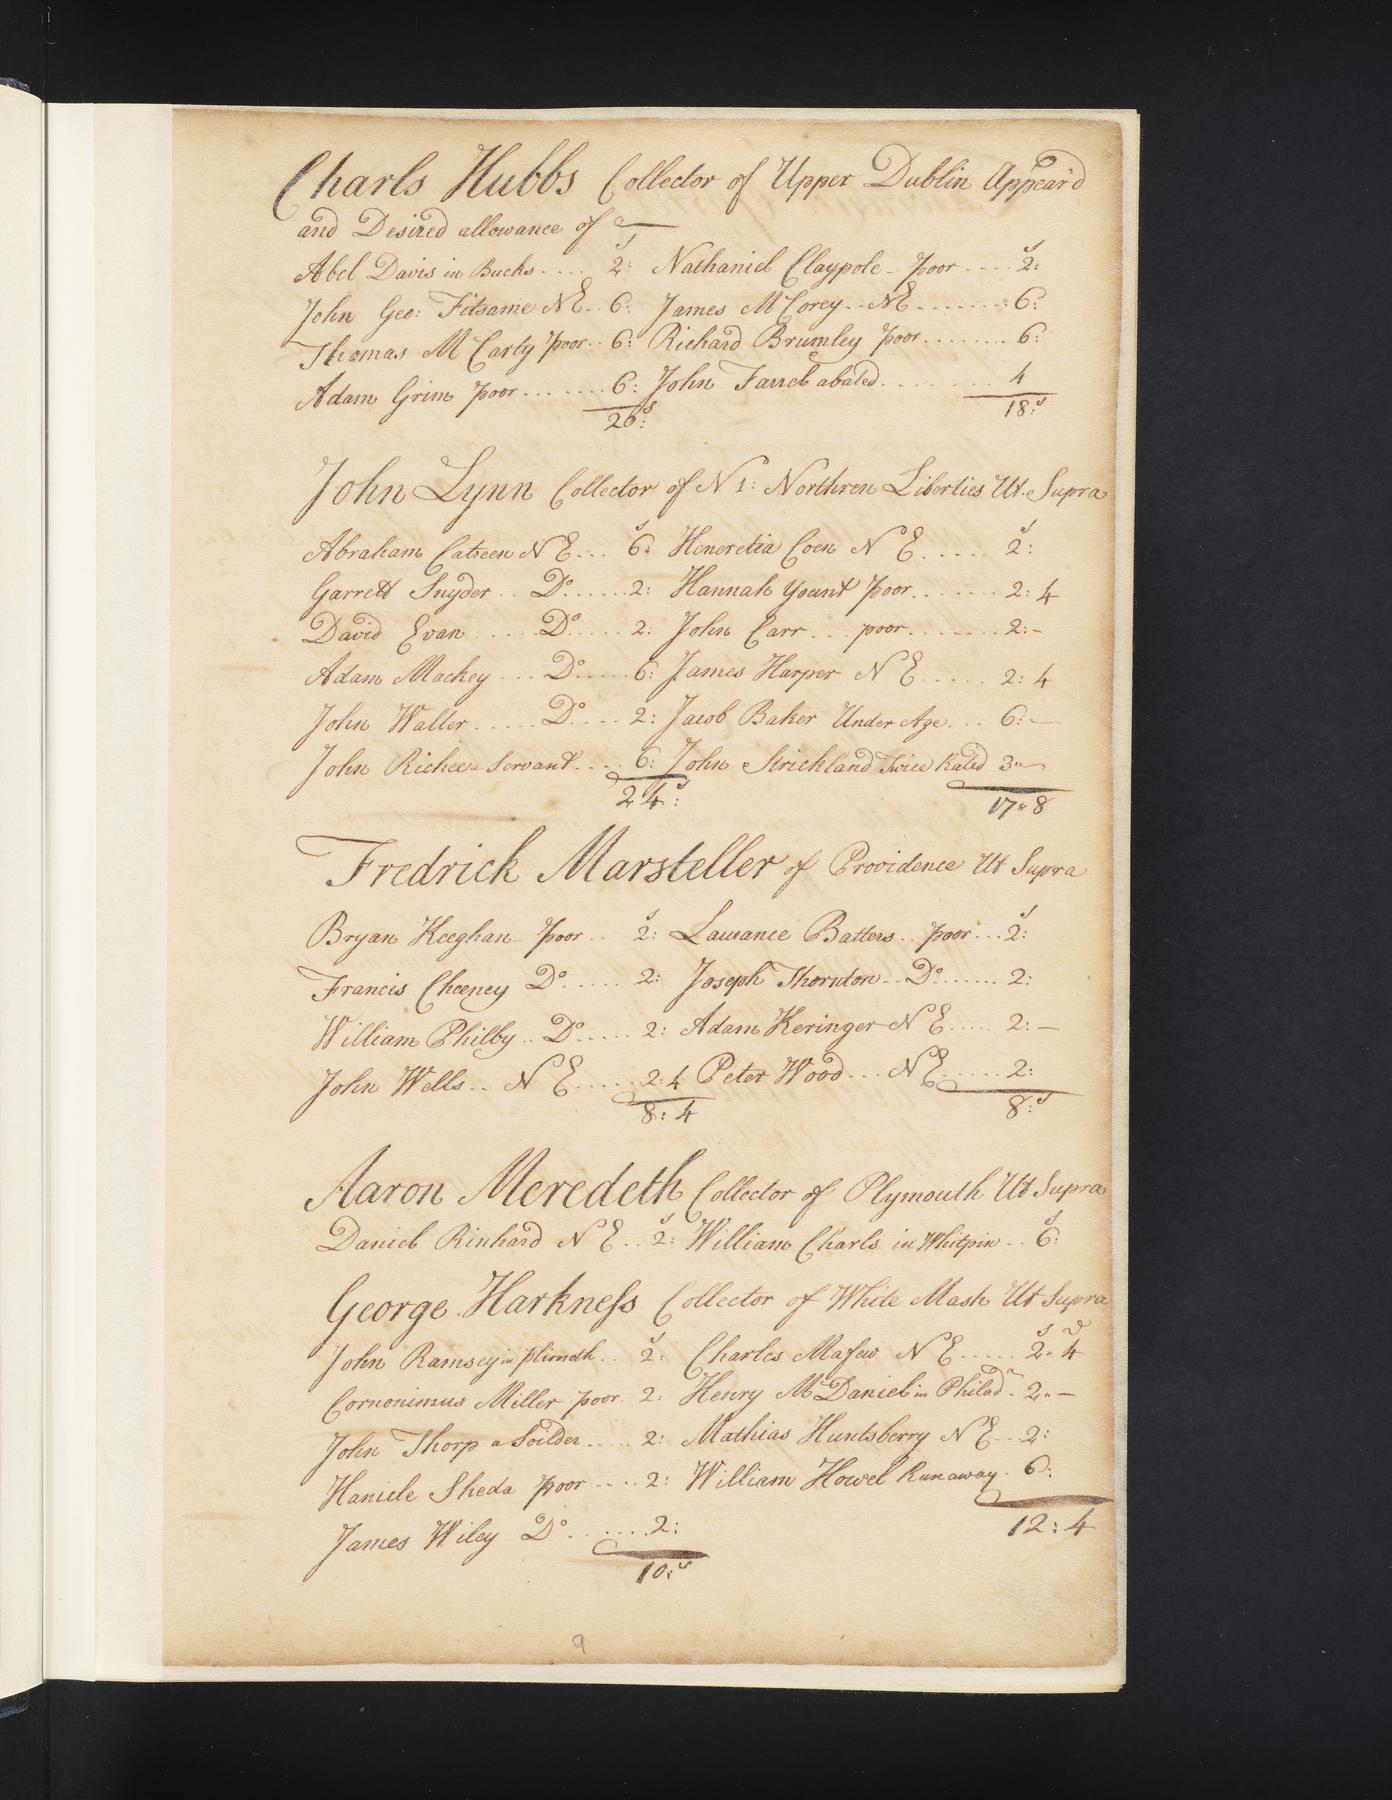 Charls Hubbs Collector of Upper Dublin Appear'd
and Desired allowance of
Abel Davis in Bucks .... 2s: Nathaniel Claypole - poor .... 2s:
John Geo: Fitsame NE .. 6: James McCorey .. NE ........ 6:
Thomas McCarty poor .. 6: Richard Brumley poor ........ 6:
Adam Grim poor ....... 6: John Farrel abated ......... 4
20s: 18:s
John Lynn Collector of N 1: Northren Liberties Ut Supra
Abraham Catreen NE ... 6s: Heneretia Coen NE ..... 2s:
Garrett Snyder .. Do ..... 2: Hannah Yount poor ....... 2: 4
David Evan .... Do ..... 2: John Carr ... poor ....... 2: -
Adam Mackey ... Do ..... 6: James Harper NE ..... 2: 4
John Waller ..... Do .... 2: Jacob Baker Under Age ... 6: -
John Richee a Servant .... 6: John Strickland Twice Rated 3"-
24s: 17"8
Fredrick Marsteller of Providence Ut Supra
Bryan Keeghan - poor .. 2s: Laurance Batters .. poor ... 2s:
Francis Cheeney Do ..... 2: Joseph Thornton .. Do ...... 2:
William Philby .. Do ..... 2: Adam Keringer NE ..... 2: -
John Wells .. NE ..... 2: 4 Peter Wood ... NE ..... 2:
8: 4 8:s
Aaron Meredeth Collector of Plymouth Ut Supra
Daniel Rinhard NE .. 2s: William Charls in Whitpin .. 6s:
George Harkness Collector of White Mash Ut Supra
John Ramsey in plimoth .. 2s: Charles Mafew NE ..... 2s" 4d
Cornonimus Miller poor . 2: Henry McDaniel in Philada . 2"-
John Thorp a Soilder .... 2: Mathias Huntsberry NE .. 2:
Haniele Sheda poor .... 2: William Howel Runaway . 6:
James Wiley Do ...... 2: 12: 4
10:s
9